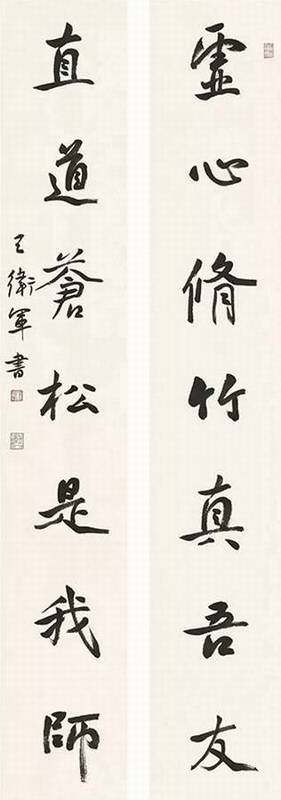 虚心脩竹真吾友
直道蒼松是我師
王衛軍書